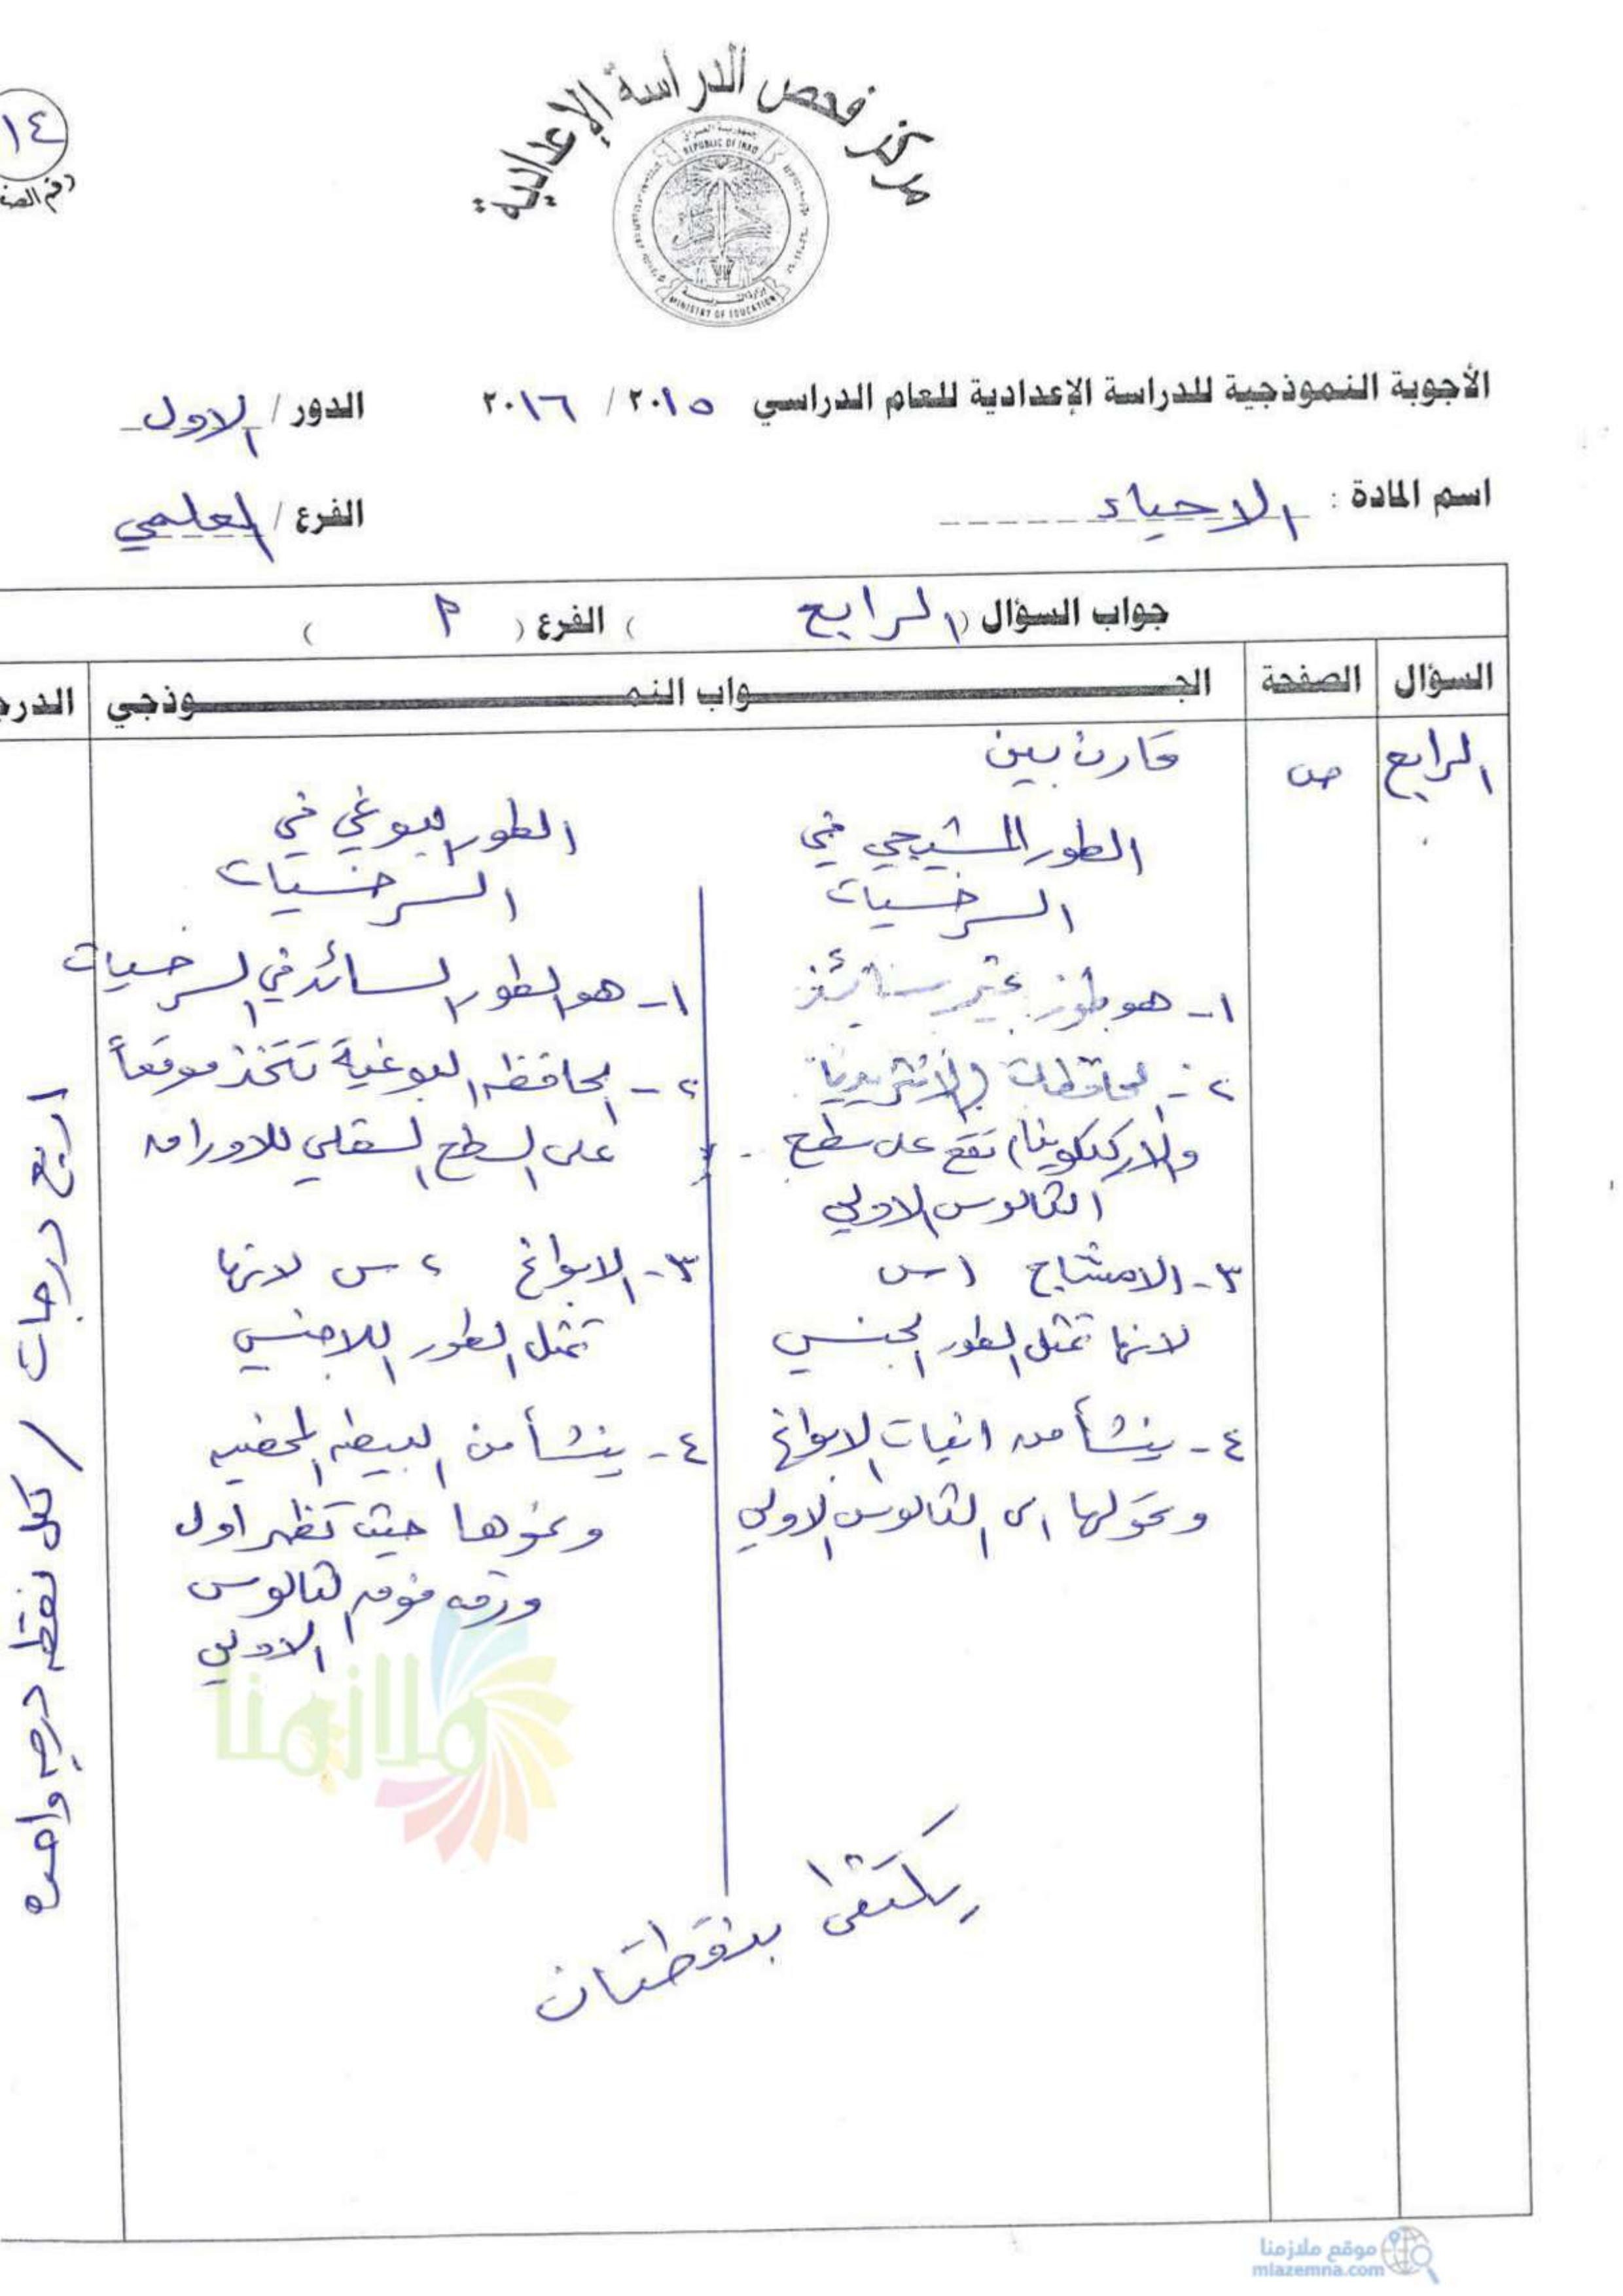 مركز فحص الدراسة الإعدادية
REPUBLIC OF IRAQ
MINISTRY OF EDUCATION
١٤
الأجوبة النموذجية للدراسة الإعدادية للعام الدراسي ٢٠١٥ / ٢٠١٦ الدور / الاول
اسم المادة : الاحياء الفرع / العلمي
جواب السؤال ( الرابع ) الفرع ( أ )
السؤال الصفحة الجـواب النمـوذجي
الرابع ص
قارن بين
الطور المشيجي في
السرخسيات
١- هو طور غير سائد
٢- الحافظات (الانثريديا
والاركيكونيا) تقع على سطح
الثالوس الاولي
٣- الامشاج ١س
لانها تمثل الطور الجنسي
٤- ينشأ من انبات الابواغ
وتحولها الى الثالوس الاولي
الطور البوغي في
السرخسيات
١- هو الطور السائد في السرخسيات
٢- الحافظه البوغية تتخذ موقعاً
على السطح السفلي للاوراق
٣- الابواغ ٢س لانها
تمثل الطور اللاجنسي
٤- ينشأ من البيضه المخصبه
ونموها حيث تظهر اول
ورقه فوق الثالوس
الاولي
يكتفى بنقطتان
اربع درجات / لكل نقطه درجه واحده
ملازمنا
موقع ملازمنا
mlazemna.com